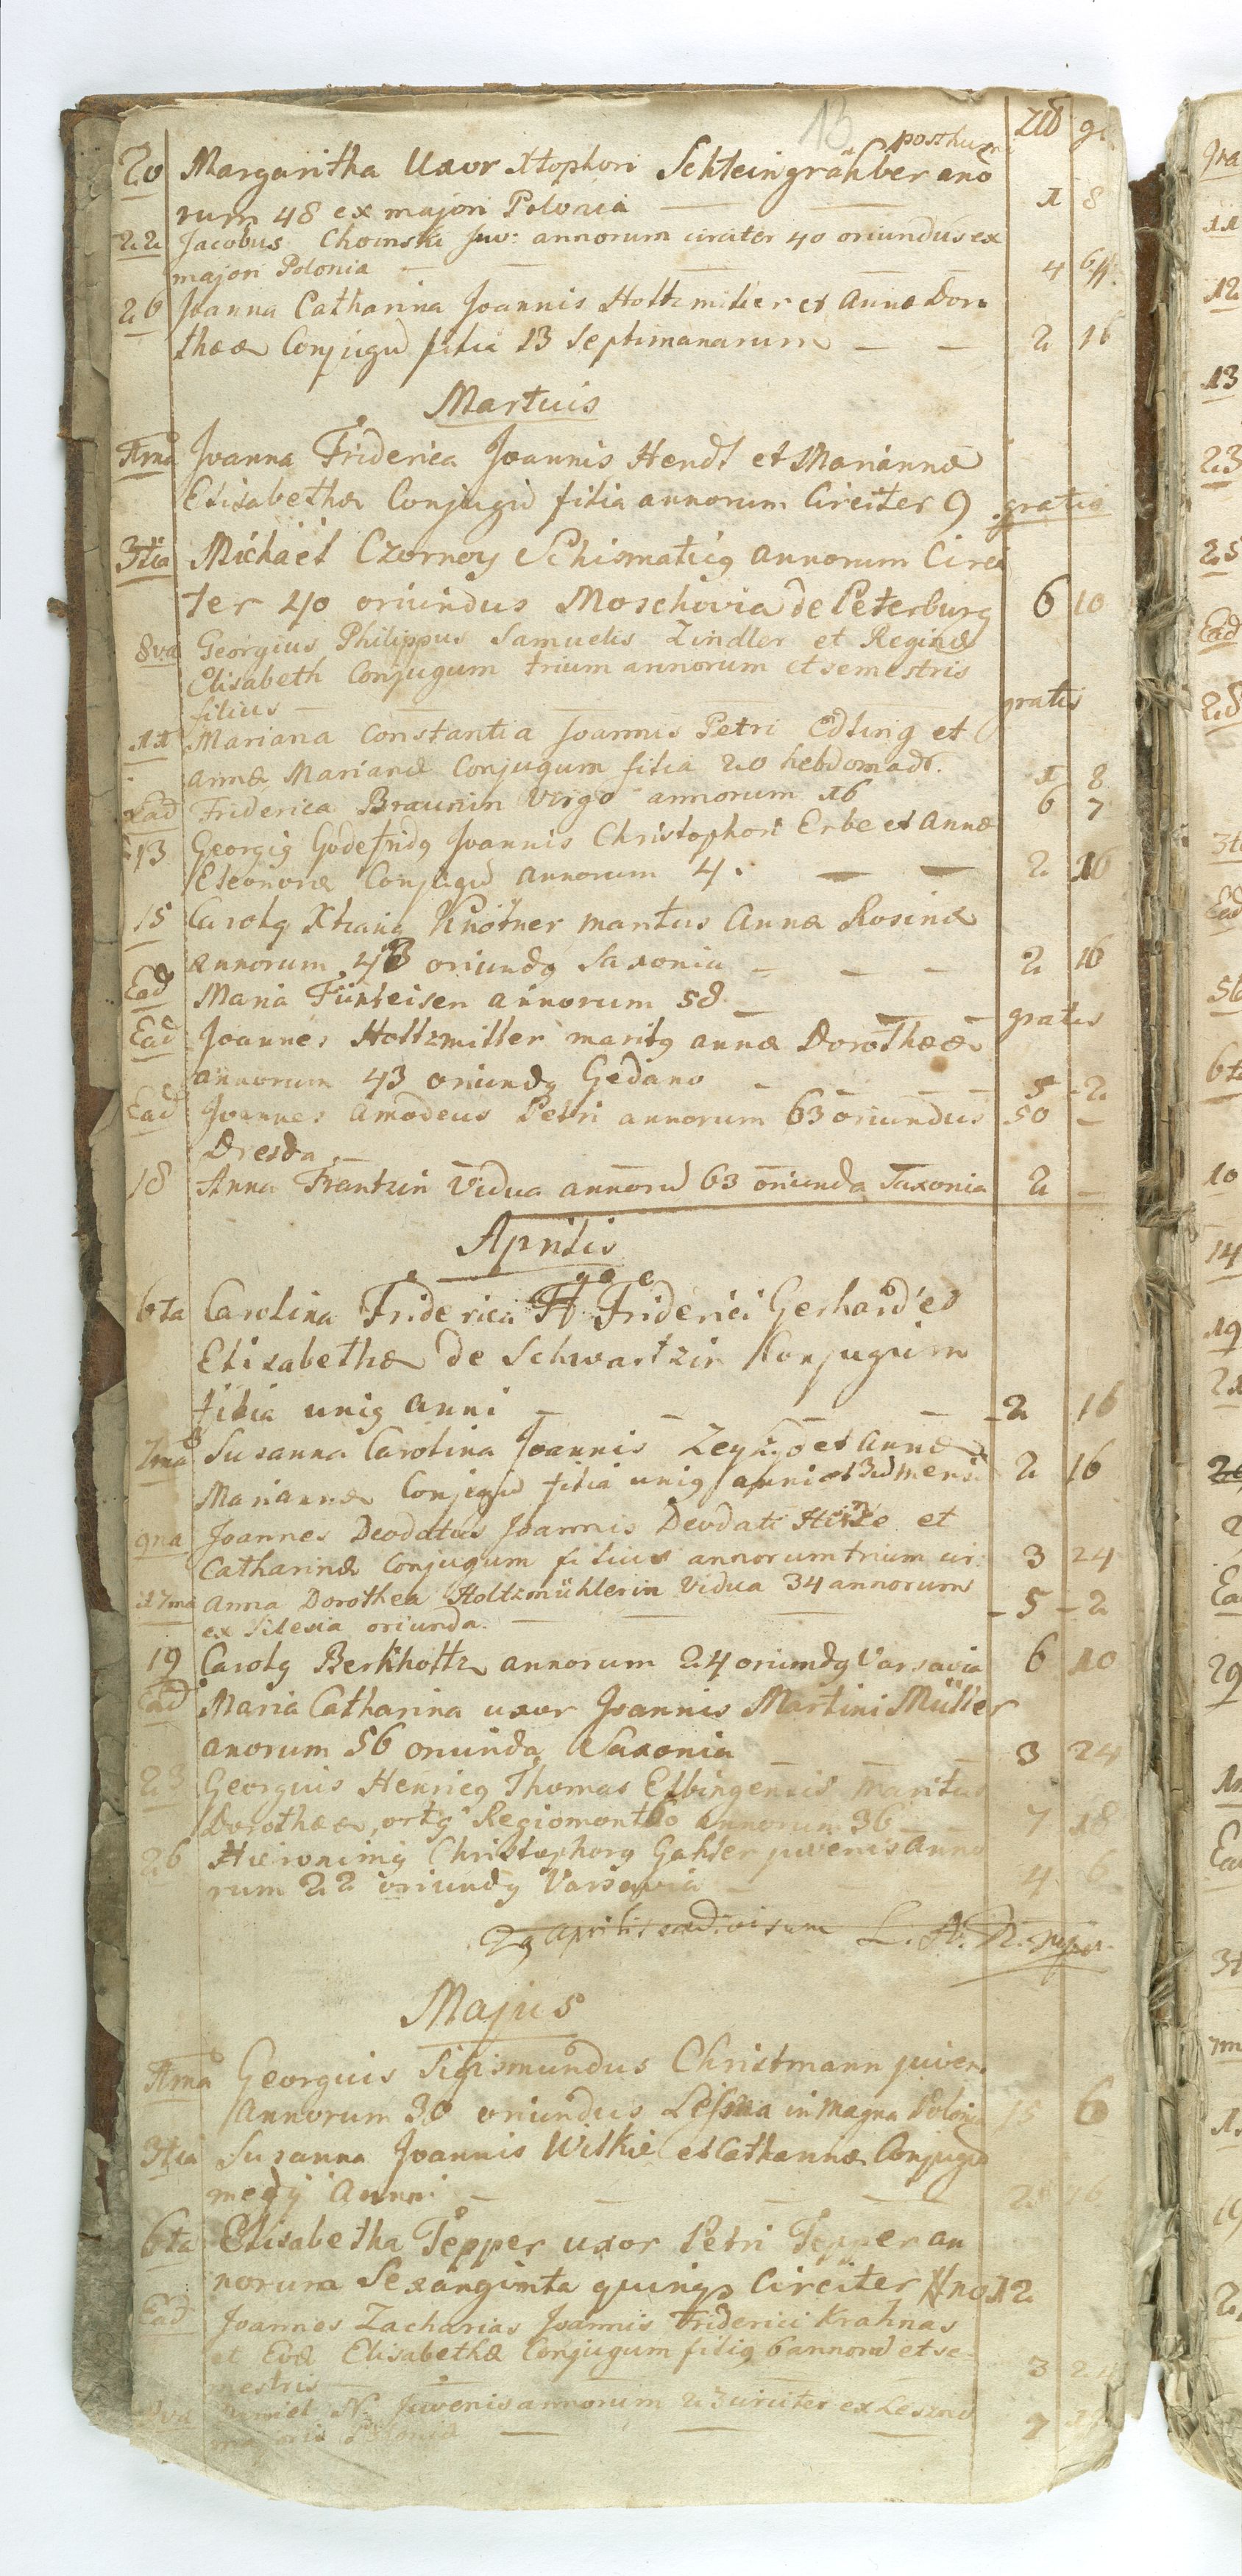 13
Złł gr.
posthumi
20 Margaritha Uxor Xtophori Schteingrähber ano
rum 48 ex majori Polonia — — 1 8
22 Jacobus Choinski Juv: annorum circiter 40 oriundus ex
majori Polonia — — — 4 6
26 Joanna Catharina Joannis Holtzmiller et Annæ Doro
theæ Conjugũ filia 13 Septimanarum — — 2 16
Martius
1ma Joanna Friderica Joannis Hendl et Mariannæ
Elisabethæ Conjugũ filia annorum Circiter 9 gratis
3tia Michael Czorney Schismaticq annorum Circi
ter 40 oriundus Moschovia de Peterburg 6 10
8va Georgius Philippus Samuelis Zindler et Reginæ
Elisabeth Conjugum trium annorum et semestris
filius — gratis
11 Mariana Constantia Joannis Petri Edling et
annæ Marianæ Conjugum filia 20 hebdomadr. 1 8
Ead Friderica Braunin Virgo annorum 16 6 7
13 Georgiq Godefridq Joannis Christophori Erbe et Annæ
Eleonoræ Conjugũ annorum 4. — — 2 16
15 Carolq Xtianq Knötner maritus Annæ Rosinæ
annorum 43 oriundq Saxonia — — — 2 16
Ead Maria Fünkeisen annorum 58 — — — gratis
Ead Joannes Holtzmiller maritq annæ Dorotheæ
annorum 43 oriundq Gedano — — — 5 - 2
Ead Joannes Amodeus Petri annorum 63 oriundus 50 —
Dresda —
18 Anna Frentzin Vidua annorũ 63 oriunda Saxonia 2 —
Aprilis
6ta Carolina Friderica Friderici Gerhard et
Elisabethæ de Schwartzin Konjugum
filia uniq anni — — — 2 16
7ma Susanna Carolina Joannis et Annæ
Mariannæ Conjugũ filia uniq anni et 3ũ mensiũ 2 16
9na Joannes Deodatus Joannis Deodati Heinze et
Catharinæ Conjugum filius annorum trium cir: 3 24
17ma Anna Dorothea Holtzmühlerin Vidua 34 annorum
ex Silesia oriunda. — — - 5 - 2
19 Carolq Berkholtz annorum 24 oriundq Varsavia 6 10
Ead Maria Catharina uxor Joannis Martini Müller
anorum 56 oriunda Saxonia — — 3 24
23 Georgius Henricq Thomas Elbingensis maritus
Dorotheæ, ortq Regiomonto annorum 36 — 7 18
26 Hieronimq Christophorq Gahler juvenis anno
rum 22 oriundq Varsavia — — 4 6
29 aprilis visum L. A. R.
Majus
1ma Georgius Sigismundus Christmann juven.
Annorum 30 oriundus Lessna in Magna Polonia 15 6
3tia Susanna Joannis Wilkie et Catharinæ Conjugũ
medÿ Anni — — — — 2 16
6ta Elisabetha Tepper uxor Petri Tepper an
norum Sexaginta quinqs Circiter no 12
Ead Joannes Zacharias Joannis Friderici Krahnas
et Evæ Elisabethæ Conjugum filiq 6 annorũ et se-
mestris — — 3 24
8va Daniel N. Juvenis annorum 23 circiter ex Lesznæ
majoris Polonia — — — 7